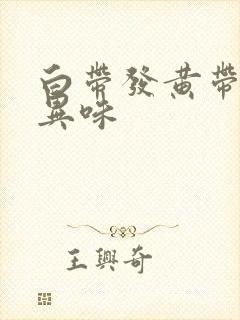 白帶發黃帶
異味
王興奇